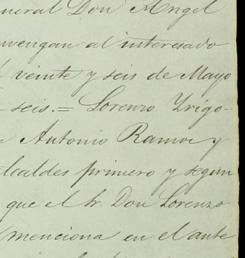 neral Don Angel
vengan al interesado
veinte y seis de Mayo
seis.= Lorenzo Yrigo-
Antonio Ramos y
lcaldes primero y segun
que el Sr. Don Lorenzo
menciona en el ante